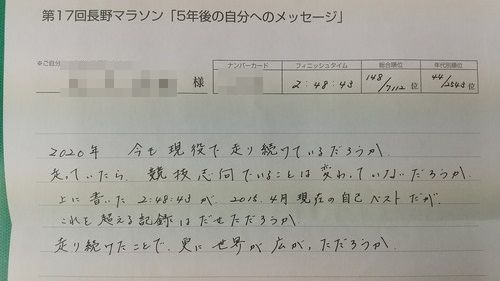 第17回長野マラソン「5年後の自分へのメッセージ」
※ご自分
様
ナンバーカード フィニッシュタイム 総合順位 年代別順位
2:48:43 148/7112位 44/2543位
2020年 今も現役で走り続けているだろうか
走っていたら、競技志向でいることは変わっていないだろうか
上に書いた2:48:43が、2015.4月現在の自己ベストだが、
これを超える記録はだせただろうか
走り続けたことで、更に世界が広がっただろうか